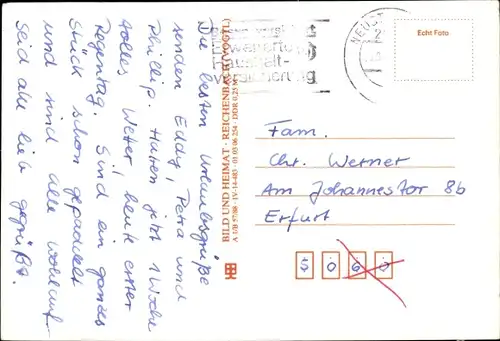 Die besten Urlaubsgrüße
senden Eddy, Petra und
Phillip. Hatten jetzt 1 Woche
tolles Wetter, heute erster
Regentag. Sind ein ganzes
Stück schon gepaddelt
und sind alle wohlauf.
Seid alle lieb gegrüßt.
BILD UND HEIMAT · REICHENBACH (VOGTL)
A 1/B 57/88 · IV-14-483 · 01 03 06 254 · DDR 0,25 M
Erweiterung
Haushalt-
versicherung
Echt Foto
Fam.
Chr. Werner
Am Johannestor 8b
Erfurt
5 0 6 0